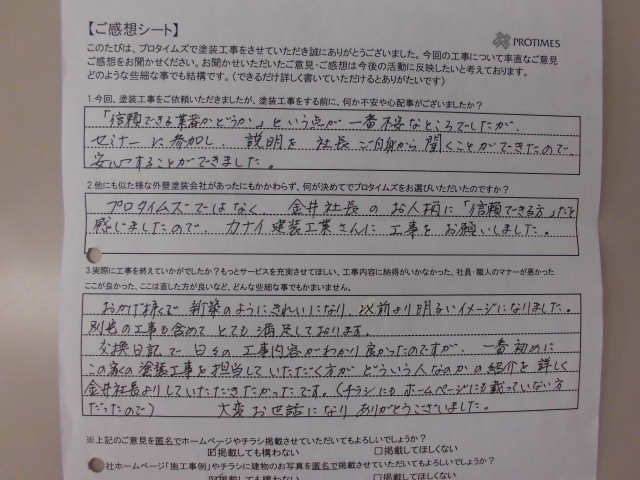 【ご感想シート】
PROTIMES
このたびは、プロタイムズで塗装工事をさせていただき誠にありがとうございました。今回の工事について率直なご意見
ご感想をお聞かせください。お聞かせいただいたご意見・ご感想は今後の活動に反映したいと考えております。
どのような些細な事でも結構です。(できるだけ詳しく書いていただけるとありがたいです)
1.今回、塗装工事をご依頼いただきましたが、塗装工事をする前に、何か不安や心配事がございましたか?
「信頼できる業者かどうか」という点が一番不安なところでしたが、
セミナーに参加し、説明を社長ご自身から聞くことができたので、
安心することができました。
2.他にも似た様な外壁塗装会社があったにもかかわらず、何が決めてでプロタイムズをお選びいただいたのですか?
プロタイムズではなく、金井社長のお人柄に「信頼できる方」だと
感じましたので、カナイ建装工業さんに工事をお願いしました。
3.実際に工事を終えていかがでしたか?もっとサービスを充実させてほしい、工事内容に納得がいかなかった、社員・職人のマナーが悪かった
ここが良かった、ここは直した方が良いなど、どんな些細な事でもかまいません。
おかげ様で新築のようにきれいになり、以前より明るいイメージになりました。
別居の工事も含めて、とても満足しております。
交換日記で日々の工事内容がわかり良かったのですが、一番初めに
この家の塗装工事を担当していただく方がどういう人なのかの紹介を詳しく
金井社長よりしていただきたかったです。(チラシにもホームページにも載っていない方
だったので) 大変お世話になりありがとうございました。
※上記のご意見を匿名でホームページやチラシ掲載させていただいてもよろしいでしょうか?
☑掲載しても構わない □掲載してほしくない
社ホームページ「施工事例」やチラシに建物のお写真を匿名で掲載させていただいてもよろしいでしょうか?
☑掲載しても構わない □掲載してほしくない